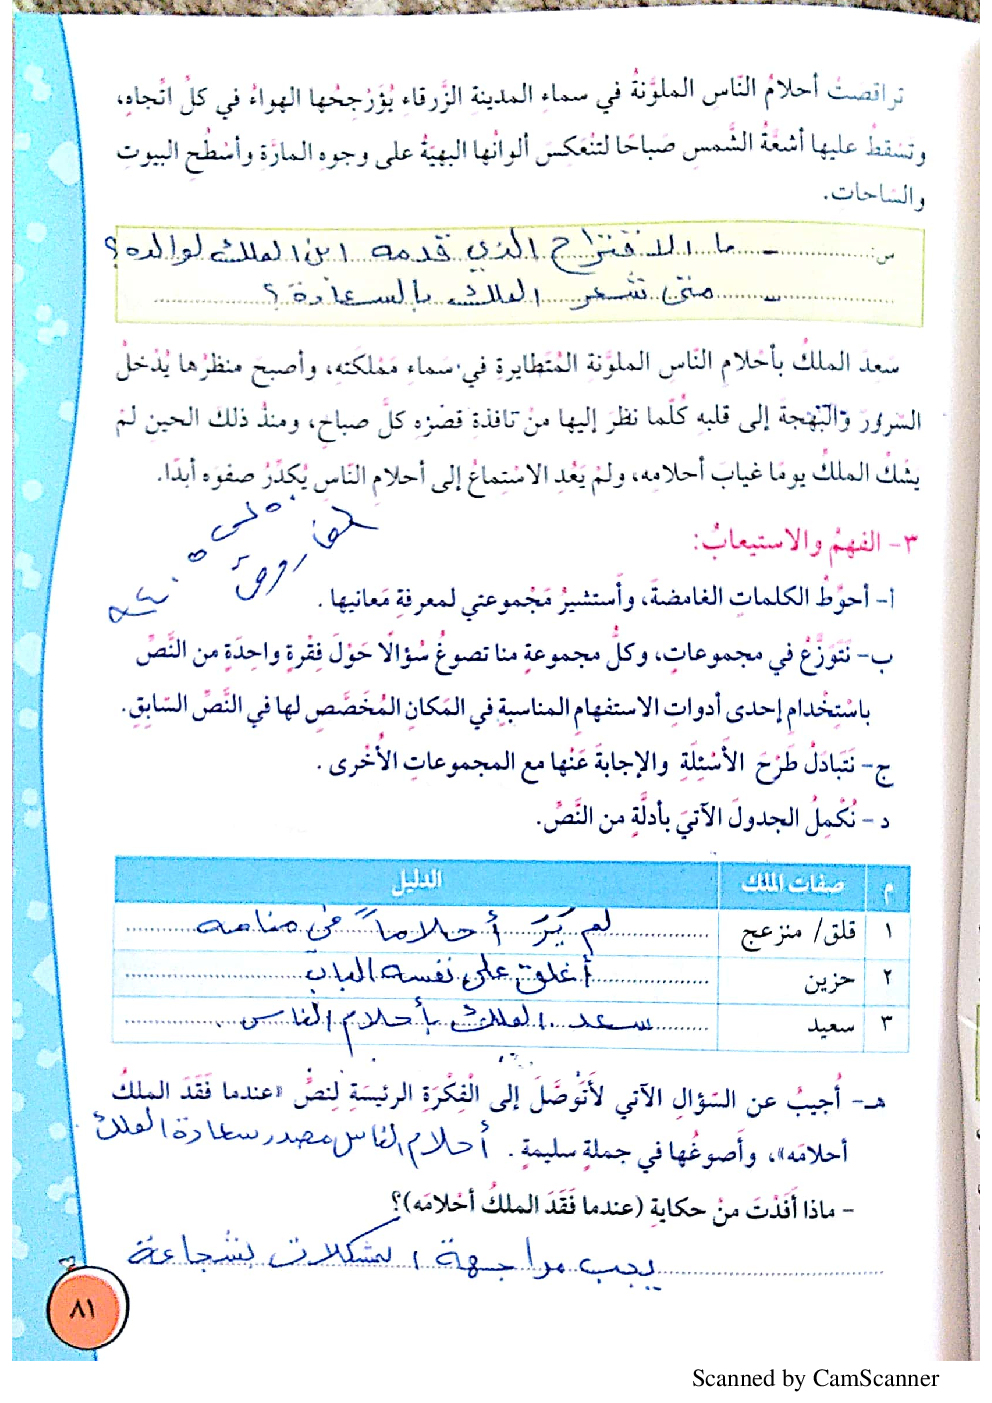 تراقصَتْ أحلامُ النّاسِ الملوَّنةُ في سماءِ المدينةِ الزَّرقاءِ يُؤَرْجحُها الهواءُ في كلّ اتّجاهٍ،
وتسْقطُ عليها أشعَّةُ الشَّمسِ صَباحًا لتنعَكِسَ ألوانُها البهيّةُ على وجوهِ المارَّةِ وأسْطُحِ البيوتِ
والسّاحات.
س - ما الاقتراح الذي قدمه ابن الملك لوالده؟
- متى شعر الملك بالسعادة؟
سَعِدَ الملكُ بأحْلامِ النّاسِ الملوّنة المُتَطايرةِ في سَماءِ مَمْلكَتهِ، وأصبحَ منظرُها يُدْخلُ
السّرورَ والبَهْجةَ إلى قلبهِ كُلّما نظرَ إليها منْ نافذةِ قصْرِه كلَّ صباحٍ، ومنذُ ذلكَ الحينِ لمْ
يشْكُ الملكُ يومًا غيابَ أحلامِه، ولمْ يَعُدِ الاسْتِماعُ إلى أحلامِ النّاسِ يُكدّرُ صفوَه أبدًا.
٣- الفهمُ والاستيعابُ:
أ- أحوّطُ الكلماتِ الغامضةَ، وأَستشيرُ مَجْموعتي لمعرفةِ مَعانيها .
ب- نَتَوَزَّعُ في مجموعاتٍ، وكلُّ مجموعةٍ منا تصوغُ سُؤالًا حَوْلَ فِقْرةٍ واحِدَةٍ من النَّصِّ
باسْتِخْدامِ إحدى أدواتِ الاستفهامِ المناسبةِ في المَكانِ المُخَصَّصِ لها في النَّصِّ السّابِقِ.
ج- نَتَبادَلُ طَرْحَ الأَسْئِلَةِ والإجابةَ عَنْها مع المجموعاتِ الأُخْرى .
د - نُكْمِلُ الجدولَ الآتيَ بأدلَّةٍ من النَّصِّ.
م صفات الملك الدليل
١ قلق/ منزعج لم يَرَ أحلاماً في منامه
٢ حزين أغلق على نفسه الباب
٣ سعيد سعد الملك بأحلام الناس.
هـ- أُجيبُ عن السّؤالِ الآتي لأَتَوَصَّلَ إلى الْفِكْرَةِ الرئيسَةِ لِنصِّ «عندما فَقَدَ الملكُ
أحلامَه»، وأَصوغُها في جملةٍ سليمةٍ . أحلام الناس مصدر سعادة الملك
- ماذا أَفَدْتَ منْ حكايةِ (عندما فَقَدَ الملكُ أحْلامَه)؟
يجب مواجهة المشكلات بشجاعة
٨١
Scanned by CamScanner